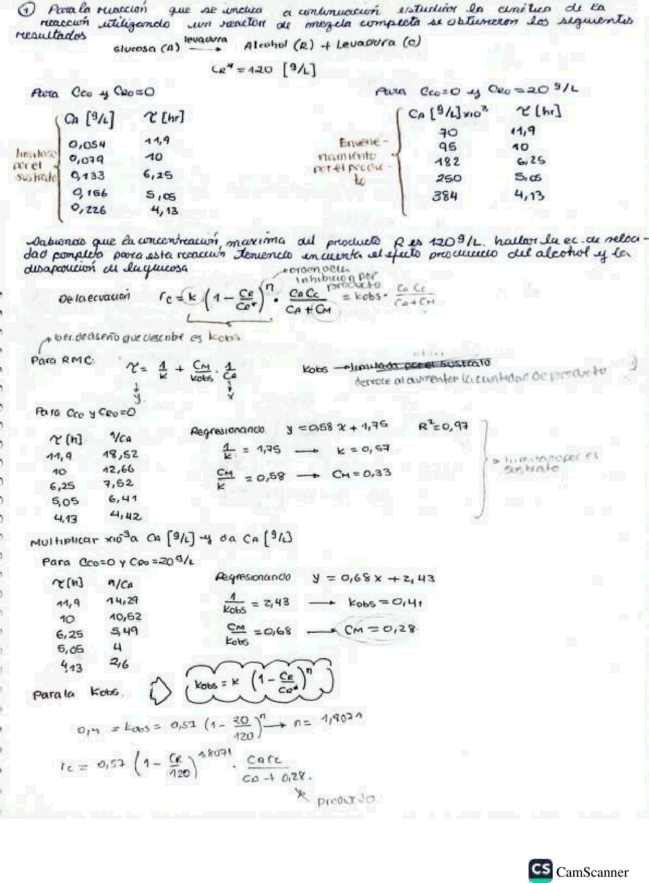 ① Para la reacción que se indica a continuación estudiar la cinética de la
reacción utilizando un reactor de mezcla completa se obtuvieron los siguientes
resultados
Glucosa (A) levadura → Alcohol (R) + Levadura (C)
CR* = 120 [g/L]
Para Cco y CRo=0
CA [g/L] τ [hr]
0,054 11,9
0,079 10
0,133 6,25
0,156 5,05
0,226 4,13
limitado
por el
sustrato
Para Cco=0 y CRo=20 g/L
CA [g/L] x10³ τ [hr]
70 11,9
95 10
182 6,25
250 5,05
384 4,13
Envene-
namiento
por el produc-
to
Sabiendo que la concentración máxima del producto R es 120 g/L. hallar la ec. de veloci-
dad completa para esta reacción teniendo en cuenta el efecto producido del alcohol y la
desaparición de la glucosa
→ orden de la
inhibición por
producto
De la ecuación rc = k (1 - CR/CR*)^n · CA Cc / CA + CM = Kobs · CA Cc / CA + CM
la ec. de diseño que describe es kobs
Para RMC: τ = 1/k + CM/kobs · 1/CA
y x
Kobs → limitada por el sustrato
decrece al aumentar la cantidad de producto
Para Cco y CRo=0
τ [h] 1/CA
11,9 18,52
10 12,66
6,25 7,52
5,05 6,41
4,13 4,42
Regresionando y = 0,58 x + 1,75 R² = 0,97
1/k = 1,75 → k = 0,57
CM/k = 0,58 → CM = 0,33
limitado por el
sustrato
Multiplicar x10³ a CA [g/L] y da CA [g/L]
Para Cco=0 y CRo = 20 g/L
τ [h] 1/CA
11,9 14,29
10 10,52
6,25 5,49
5,05 4
4,13 2,6
Regresionando y = 0,68 x + 2,43
1/Kobs = 2,43 → Kobs = 0,41
CM/Kobs = 0,68 → CM = 0,28
Para la Kobs. ⇨ Kobs = k (1 - CR/CR*)^n
0,41 = kobs = 0,57 (1 - 20/120)^n → n = 1,8071
rc = 0,57 (1 - CR/120)^1,8071 · CA Cc / CA + 0,28.
producto
CS CamScanner